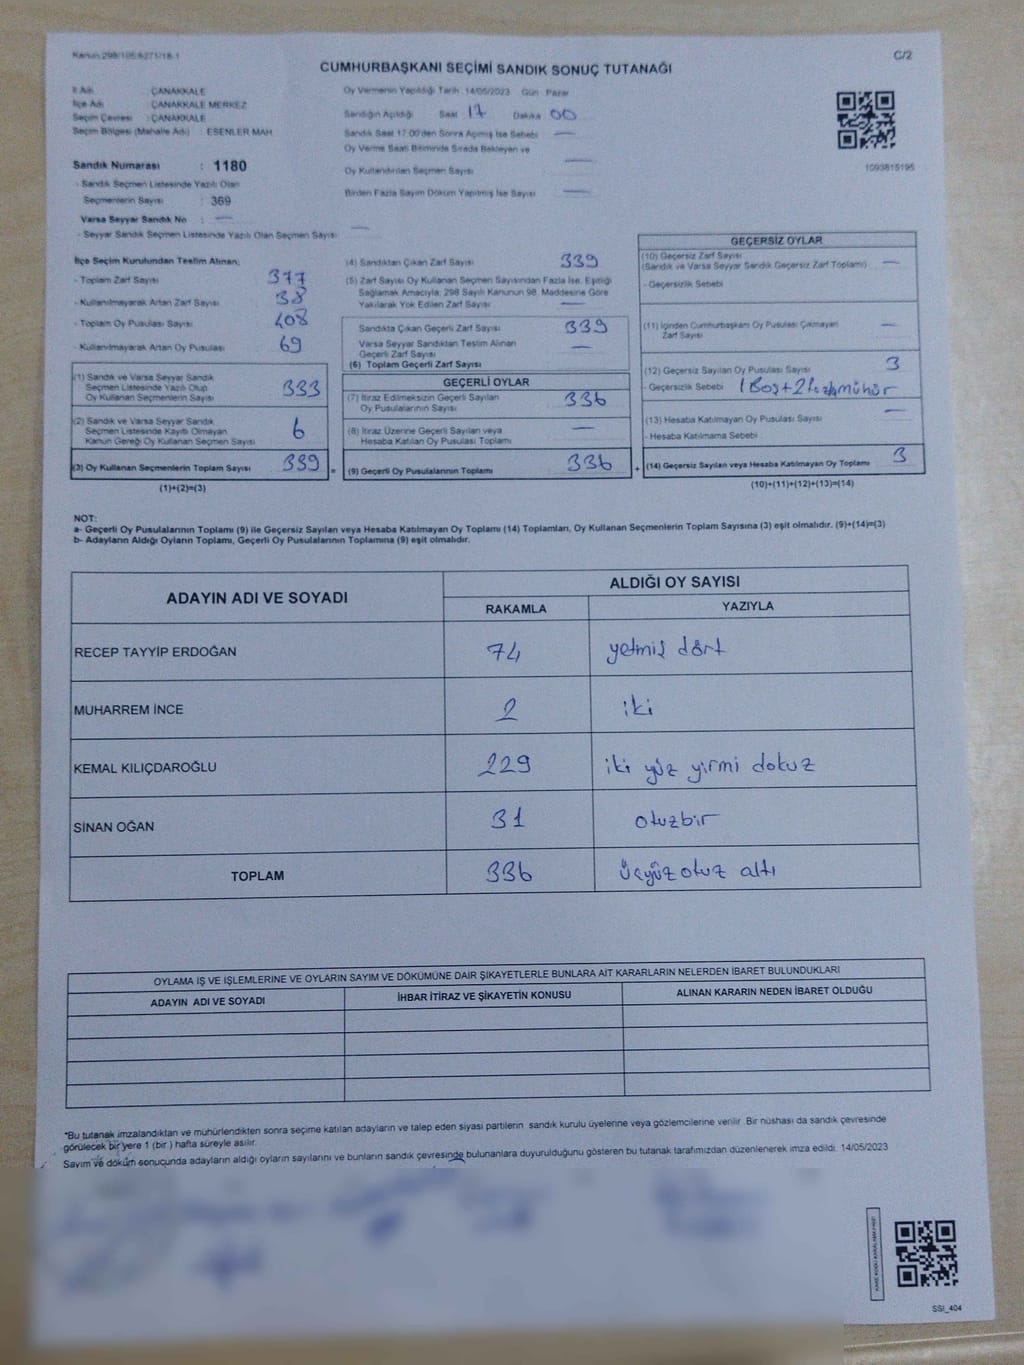 Kanun:298/105;6271/18-1
C/2
CUMHURBAŞKANI SEÇİMİ SANDIK SONUÇ TUTANAĞI
İl Adı : ÇANAKKALE
İlçe Adı : ÇANAKKALE MERKEZ
Seçim Çevresi : ÇANAKKALE
Seçim Bölgesi (Mahalle Adı) : ESENLER MAH.
Sandık Numarası : 1180
- Sandık Seçmen Listesinde Yazılı Olan
Seçmenlerin Sayısı : 369
Varsa Seyyar Sandık No : —
- Seyyar Sandık Seçmen Listesinde Yazılı Olan Seçmen Sayısı : —
Oy Vermenin Yapıldığı Tarih : 14/05/2023 Gün : Pazar
Sandığın Açıldığı Saat 17 Dakika 00
Sandık Saat 17.00'den Sonra Açılmış İse Sebebi —
Oy Verme Saati Bitiminde Sırada Bekleyen ve
Oy Kullandırılan Seçmen Sayısı —
Birden Fazla Sayım Döküm Yapılmış İse Sayısı —
1093815195
İlçe Seçim Kurulundan Teslim Alınan;
- Toplam Zarf Sayısı 377
- Kullanılmayarak Artan Zarf Sayısı 38
- Toplam Oy Pusulası Sayısı 408
- Kullanılmayarak Artan Oy Pusulası 69
(1) Sandık ve Varsa Seyyar Sandık
Seçmen Listesinde Yazılı Olup
Oy Kullanan Seçmenlerin Sayısı 333
(2) Sandık ve Varsa Seyyar Sandık
Seçmen Listesinde Kayıtlı Olmayan
Kanun Gereği Oy Kullanan Seçmen Sayısı 6
(3) Oy Kullanan Seçmenlerin Toplam Sayısı 339 =
(1)+(2)=(3)
(4) Sandıktan Çıkan Zarf Sayısı 339
(5) Zarf Sayısı Oy Kullanan Seçmen Sayısından Fazla İse, Eşitliği
Sağlamak Amacıyla; 298 Sayılı Kanunun 98. Maddesine Göre
Yakılarak Yok Edilen Zarf Sayısı —
Sandıkta Çıkan Geçerli Zarf Sayısı 339
Varsa Seyyar Sandıktan Teslim Alınan
Geçerli Zarf Sayısı —
(6) Toplam Geçerli Zarf Sayısı
GEÇERLİ OYLAR
(7) İtiraz Edilmeksizin Geçerli Sayılan
Oy Pusulalarının Sayısı 336
(8) İtiraz Üzerine Geçerli Sayılan veya
Hesaba Katılan Oy Pusulası Toplamı —
(9) Geçerli Oy Pusulalarının Toplamı 336 +
GEÇERSİZ OYLAR
(10) Geçersiz Zarf Sayısı
(Sandık ve Varsa Seyyar Sandık Geçersiz Zarf Toplamı) —
- Geçersizlik Sebebi
(11) İçinden Cumhurbaşkanı Oy Pusulası Çıkmayan
Zarf Sayısı —
(12) Geçersiz Sayılan Oy Pusulası Sayısı 3
- Geçersizlik Sebebi 1 Boş+2 fazla mühür
(13) Hesaba Katılmayan Oy Pusulası Sayısı —
- Hesaba Katılmama Sebebi
(14) Geçersiz Sayılan veya Hesaba Katılmayan Oy Toplamı 3
(10)+(11)+(12)+(13)=(14)
NOT:
a- Geçerli Oy Pusulalarının Toplamı (9) ile Geçersiz Sayılan veya Hesaba Katılmayan Oy Toplamı (14) Toplamları, Oy Kullanan Seçmenlerin Toplam Sayısına (3) eşit olmalıdır. (9)+(14)=(3)
b- Adayların Aldığı Oyların Toplamı, Geçerli Oy Pusulalarının Toplamına (9) eşit olmalıdır.
ADAYIN ADI VE SOYADI
ALDIĞI OY SAYISI
RAKAMLA YAZIYLA
RECEP TAYYİP ERDOĞAN 74 yetmiş dört
MUHARREM İNCE 2 iki
KEMAL KILIÇDAROĞLU 229 iki yüz yirmi dokuz
SİNAN OĞAN 31 otuzbir
TOPLAM 336 üçyüz otuz altı
OYLAMA İŞ VE İŞLEMLERİNE VE OYLARIN SAYIM VE DÖKÜMÜNE DAİR ŞİKAYETLERLE BUNLARA AİT KARARLARIN NELERDEN İBARET BULUNDUKLARI
ADAYIN ADI VE SOYADI İHBAR İTİRAZ VE ŞİKAYETİN KONUSU ALINAN KARARIN NEDEN İBARET OLDUĞU
*Bu tutanak imzalandıktan ve mühürlendikten sonra seçime katılan adayların ve talep eden siyasi partilerin sandık kurulu üyelerine veya gözlemcilerine verilir. Bir nüshası da sandık çevresinde
görülecek bir yere 1 (bir ) hafta süreyle asılır.
Sayım ve döküm sonucunda adayların aldığı oyların sayılarını ve bunların sandık çevresinde bulunanlara duyurulduğunu gösteren bu tutanak tarafımızdan düzenlenerek imza edildi. 14/05/2023
SSI_404